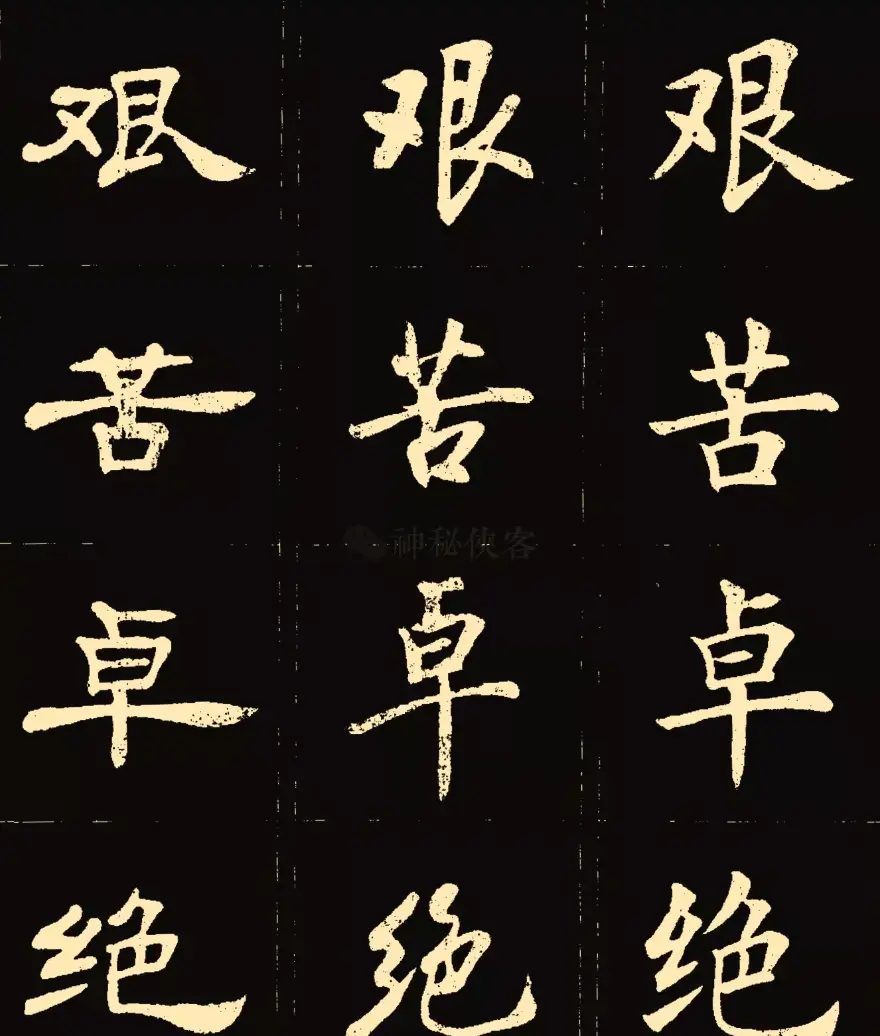 艰 艰 艰
苦 苦 苦
神秘侠客
卓 卓 卓
绝 绝 绝